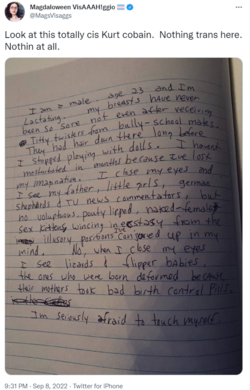 Magdaloween VisAAAH!ggio
@MagsVisaggs
Look at this totally cis Kurt cobain. Nothing trans here.
Nothin at all.
I am a male age 23 and I'm
lactating. my breasts have never
been so sore not even after receiving
Titty twisters from bully-school mates.
They had hair down there long before
I stopped playing with dolls. I haven't
masturbated in months because I've lost
my imagination. I close my eyes and
I see my father, little girls, german
Shepherds & TU news commentators, but
no voluptuous, pouty lipped, naked-female
sex wincing in ecstasy from the
illusory positions I've conjured up in my
mind. No, when I close my eyes
I see lizards & flipper babies,
the ones who were born deformed because
their mothers took bad birth control Pills.
I'm seriously afraid to touch myself.
9:31 PM · Sep 8, 2022 · Twitter for iPhone